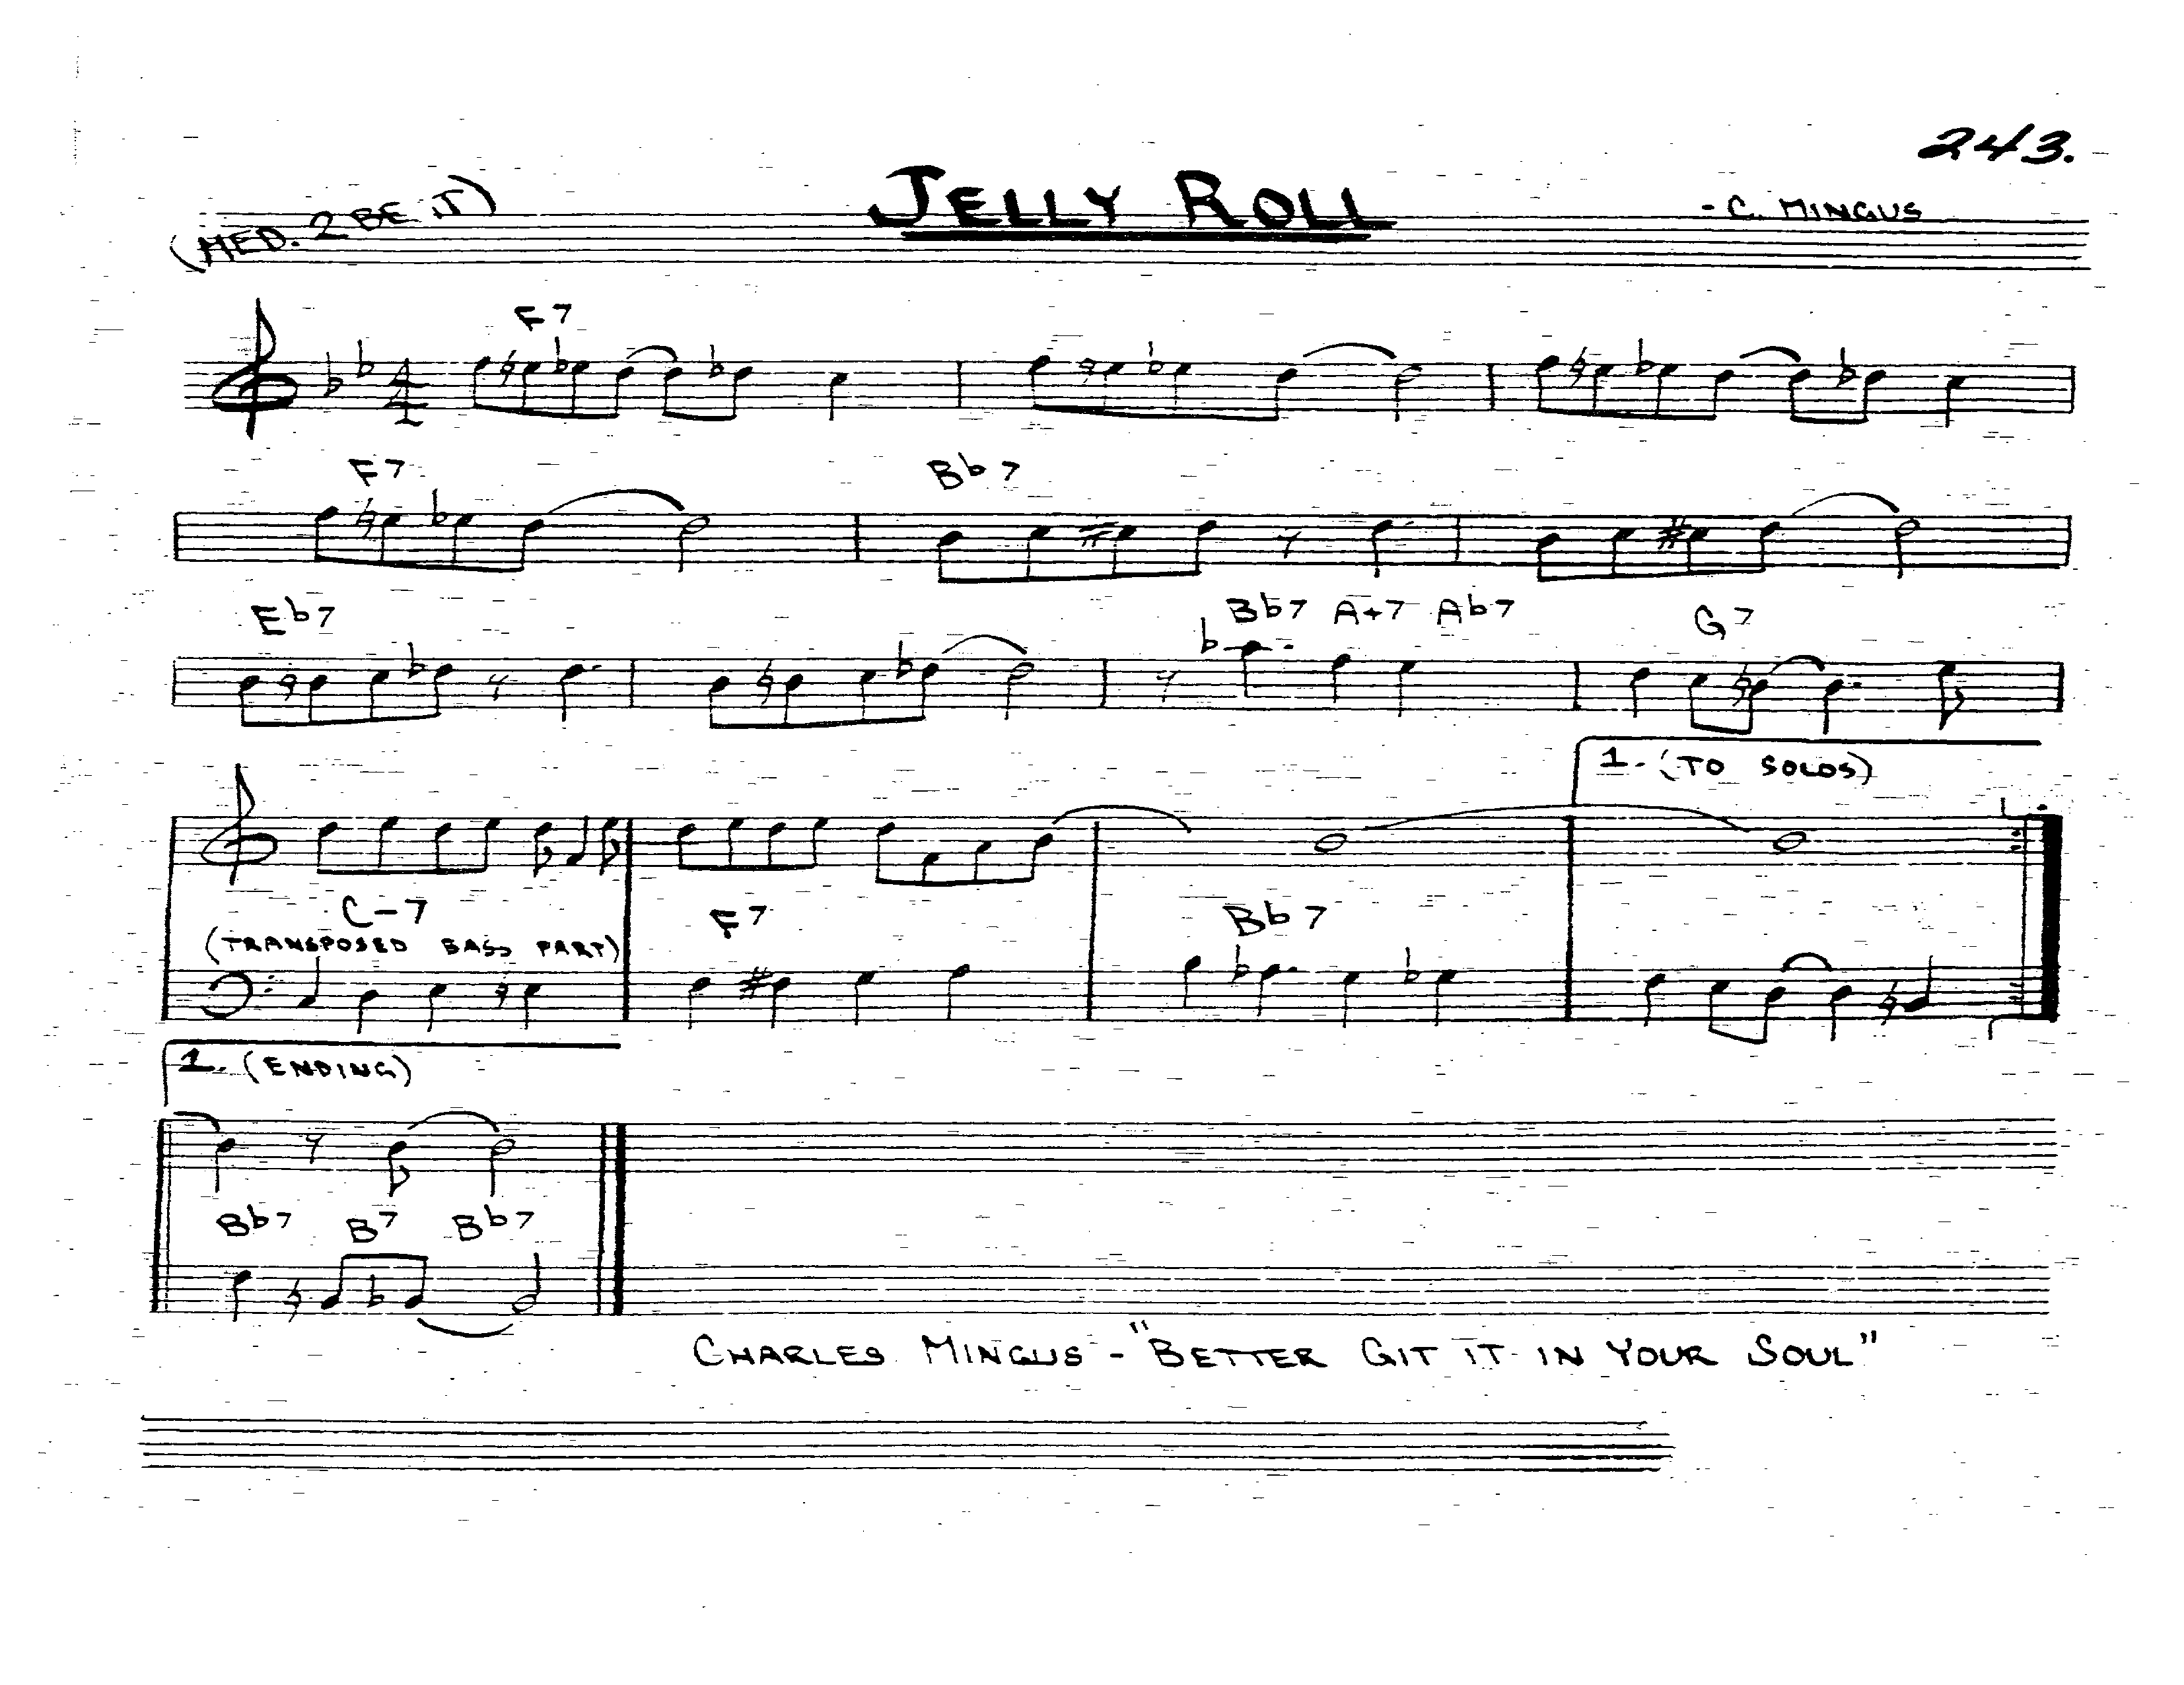 243.
(MED. 2 BEAT)
JELLY ROLL
- C. MINGUS
F7
F7 Bb7
Eb7 Bb7 A+7 Ab7 G7
1. (TO SOLOS)
C-7 F7 Bb7
(TRANSPOSED BASS PART)
1. (ENDING)
Bb7 B7 Bb7
CHARLES MINGUS - "BETTER GIT IT IN YOUR SOUL"